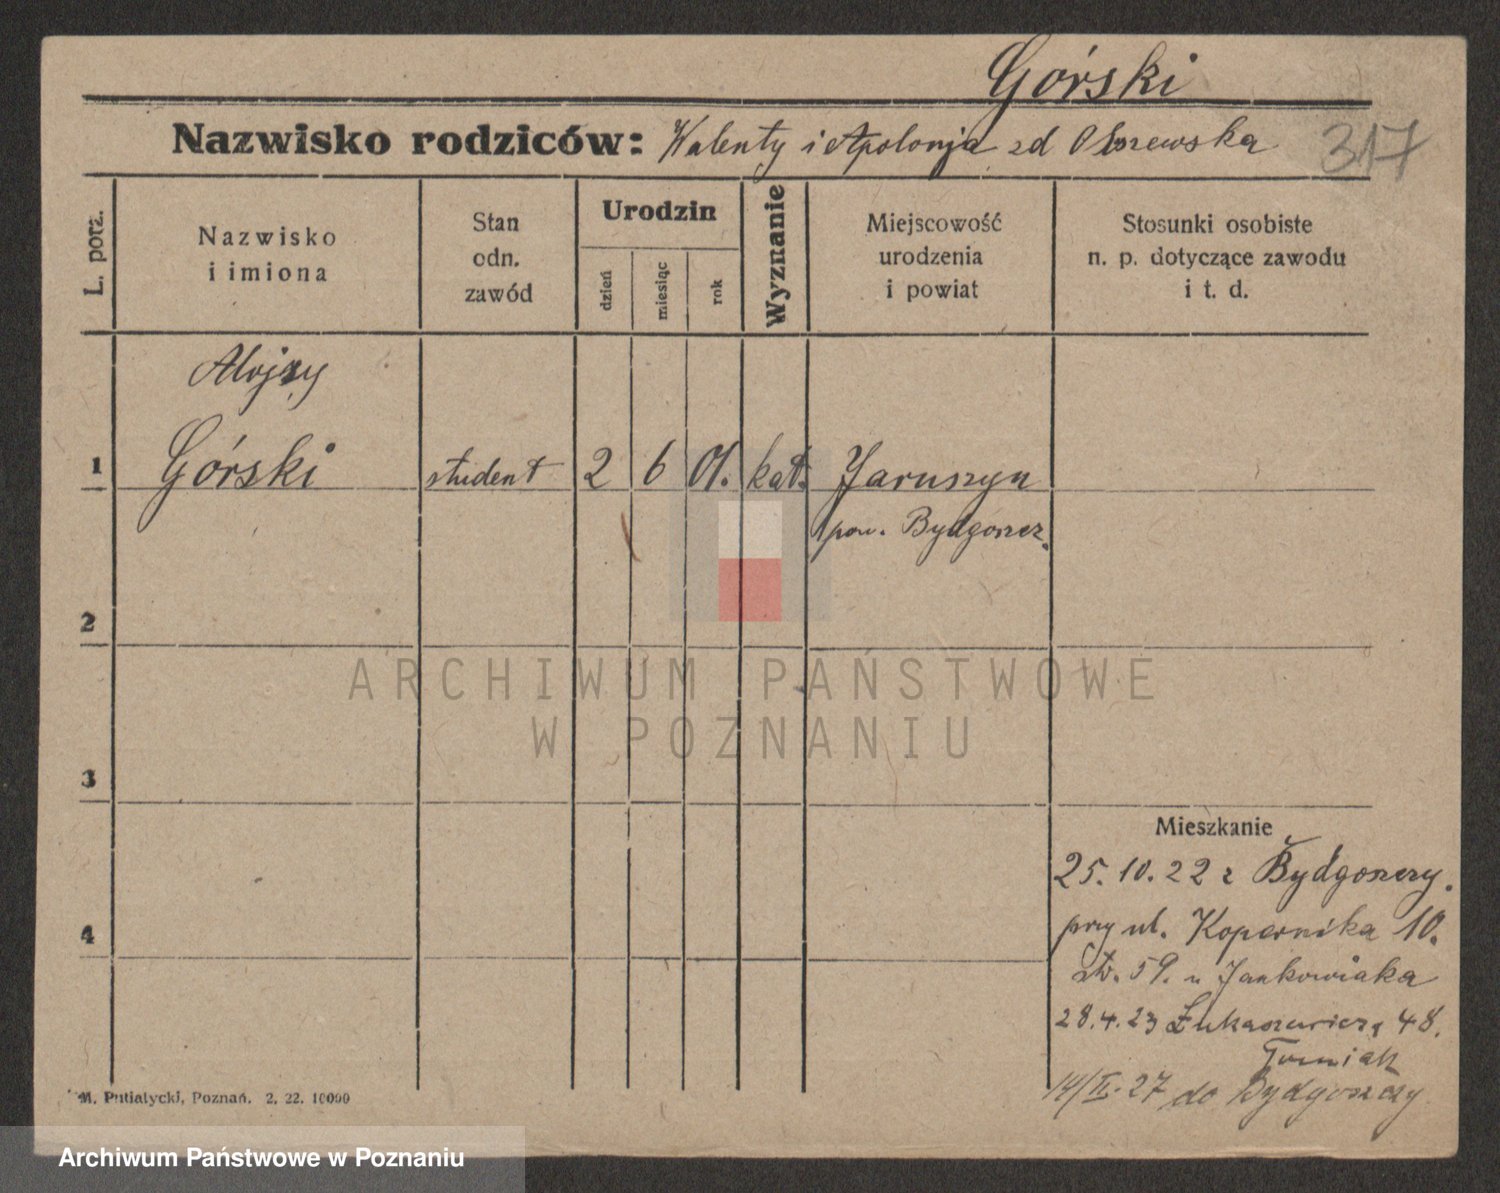 Górski
Nazwisko rodziców: Walenty i Apolonja zd Olszewska
317
L. porz.
Nazwisko
i imiona
Stan
odn.
zawód
Urodzin
dzień
miesiąc
rok
Wyznanie
Miejscowość
urodzenia
i powiat
Stosunki osobiste
n. p. dotyczące zawodu
i t. d.
Alojzy
1 Górski student 2 6 01. kat. Jaruszyn
pow. Bydgoszcz.
2
ARCHIWUM PAŃSTWOWE
W POZNANIU
3
Mieszkanie
25.10.22 z Bydgoszczy.
przy ul. Kopernika 10.
4
59. u Jankowiaka
28.4.23 Łukaszewicza 48.
14/II.27 do Bydgoszczy
M. Putiatycki, Poznań. 2. 22. 10000
Archiwum Państwowe w Poznaniu